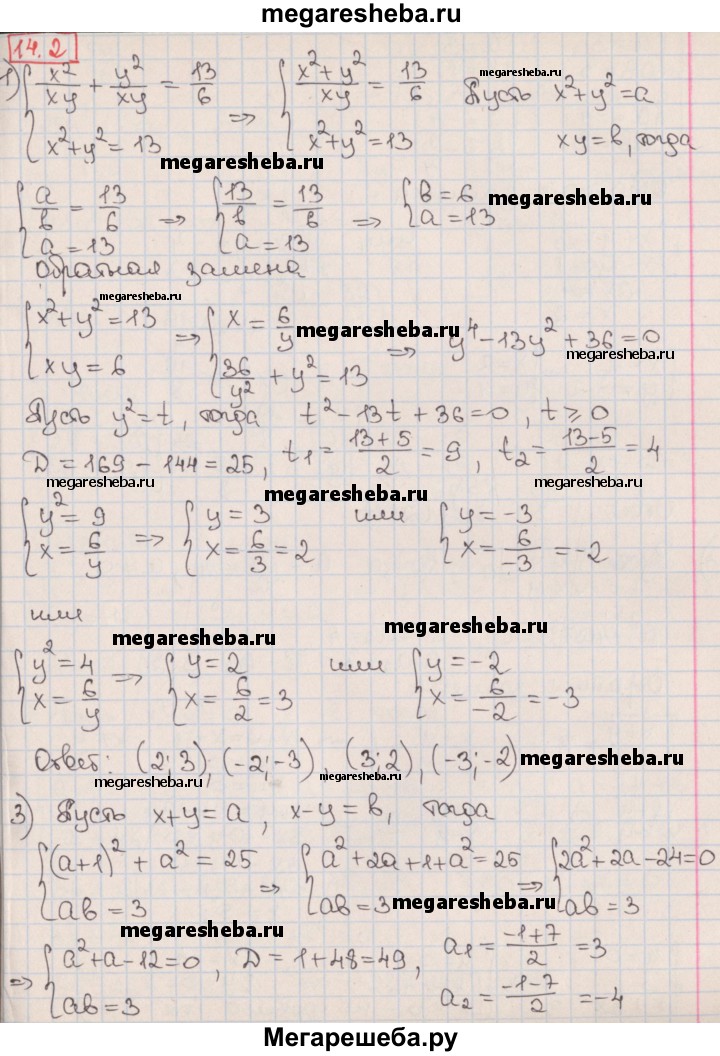 megaresheba.ru
14.2
1) { x²/xy + y²/xy = 13/6 ⇒ { (x²+y²)/xy = 13/6 Пусть x²+y²=a
{ x²+y²=13 { x²+y²=13 xy=в, тогда
megaresheba.ru
megaresheba.ru
{ a/в = 13/6 ⇒ { 13/в = 13/6 ⇒ { в=6
{ a=13 { a=13 { a=13
megaresheba.ru
Обратная замена
megaresheba.ru
{ x²+y²=13 ⇒ { x = 6/y ⇒ y⁴-13y²+36=0
{ xy=6 { 36/y² + y² = 13
megaresheba.ru
megaresheba.ru
Пусть y²=t, тогда t²-13t+36=0, t⩾0
D=169-144=25, t₁ = (13+5)/2 = 9, t₂ = (13-5)/2 = 4
megaresheba.ru
megaresheba.ru
megaresheba.ru
{ y²=9 ⇒ { y=3 или { y=-3
{ x = 6/y { x = 6/3 = 2 { x = 6/-3 = -2
или
megaresheba.ru
megaresheba.ru
{ y²=4 ⇒ { y=2 или { y=-2
{ x = 6/y { x = 6/2 = 3 { x = 6/-2 = -3
Ответ: (2;3), (-2;-3), (3;2), (-3;-2)
megaresheba.ru
megaresheba.ru
megaresheba.ru
3) Пусть x+y=a, x-y=в, тогда
{ (a+1)²+a²=25 ⇒ { a²+2a+1+a²=25 ⇒ { 2a²+2a-24=0
{ aв=3 { aв=3 { aв=3
megaresheba.ru
megaresheba.ru
⇒ { a²+a-12=0, D=1+48=49, a₁ = (-1+7)/2 = 3
{ aв=3 a₂ = (-1-7)/2 = -4
Мегарешеба.ру